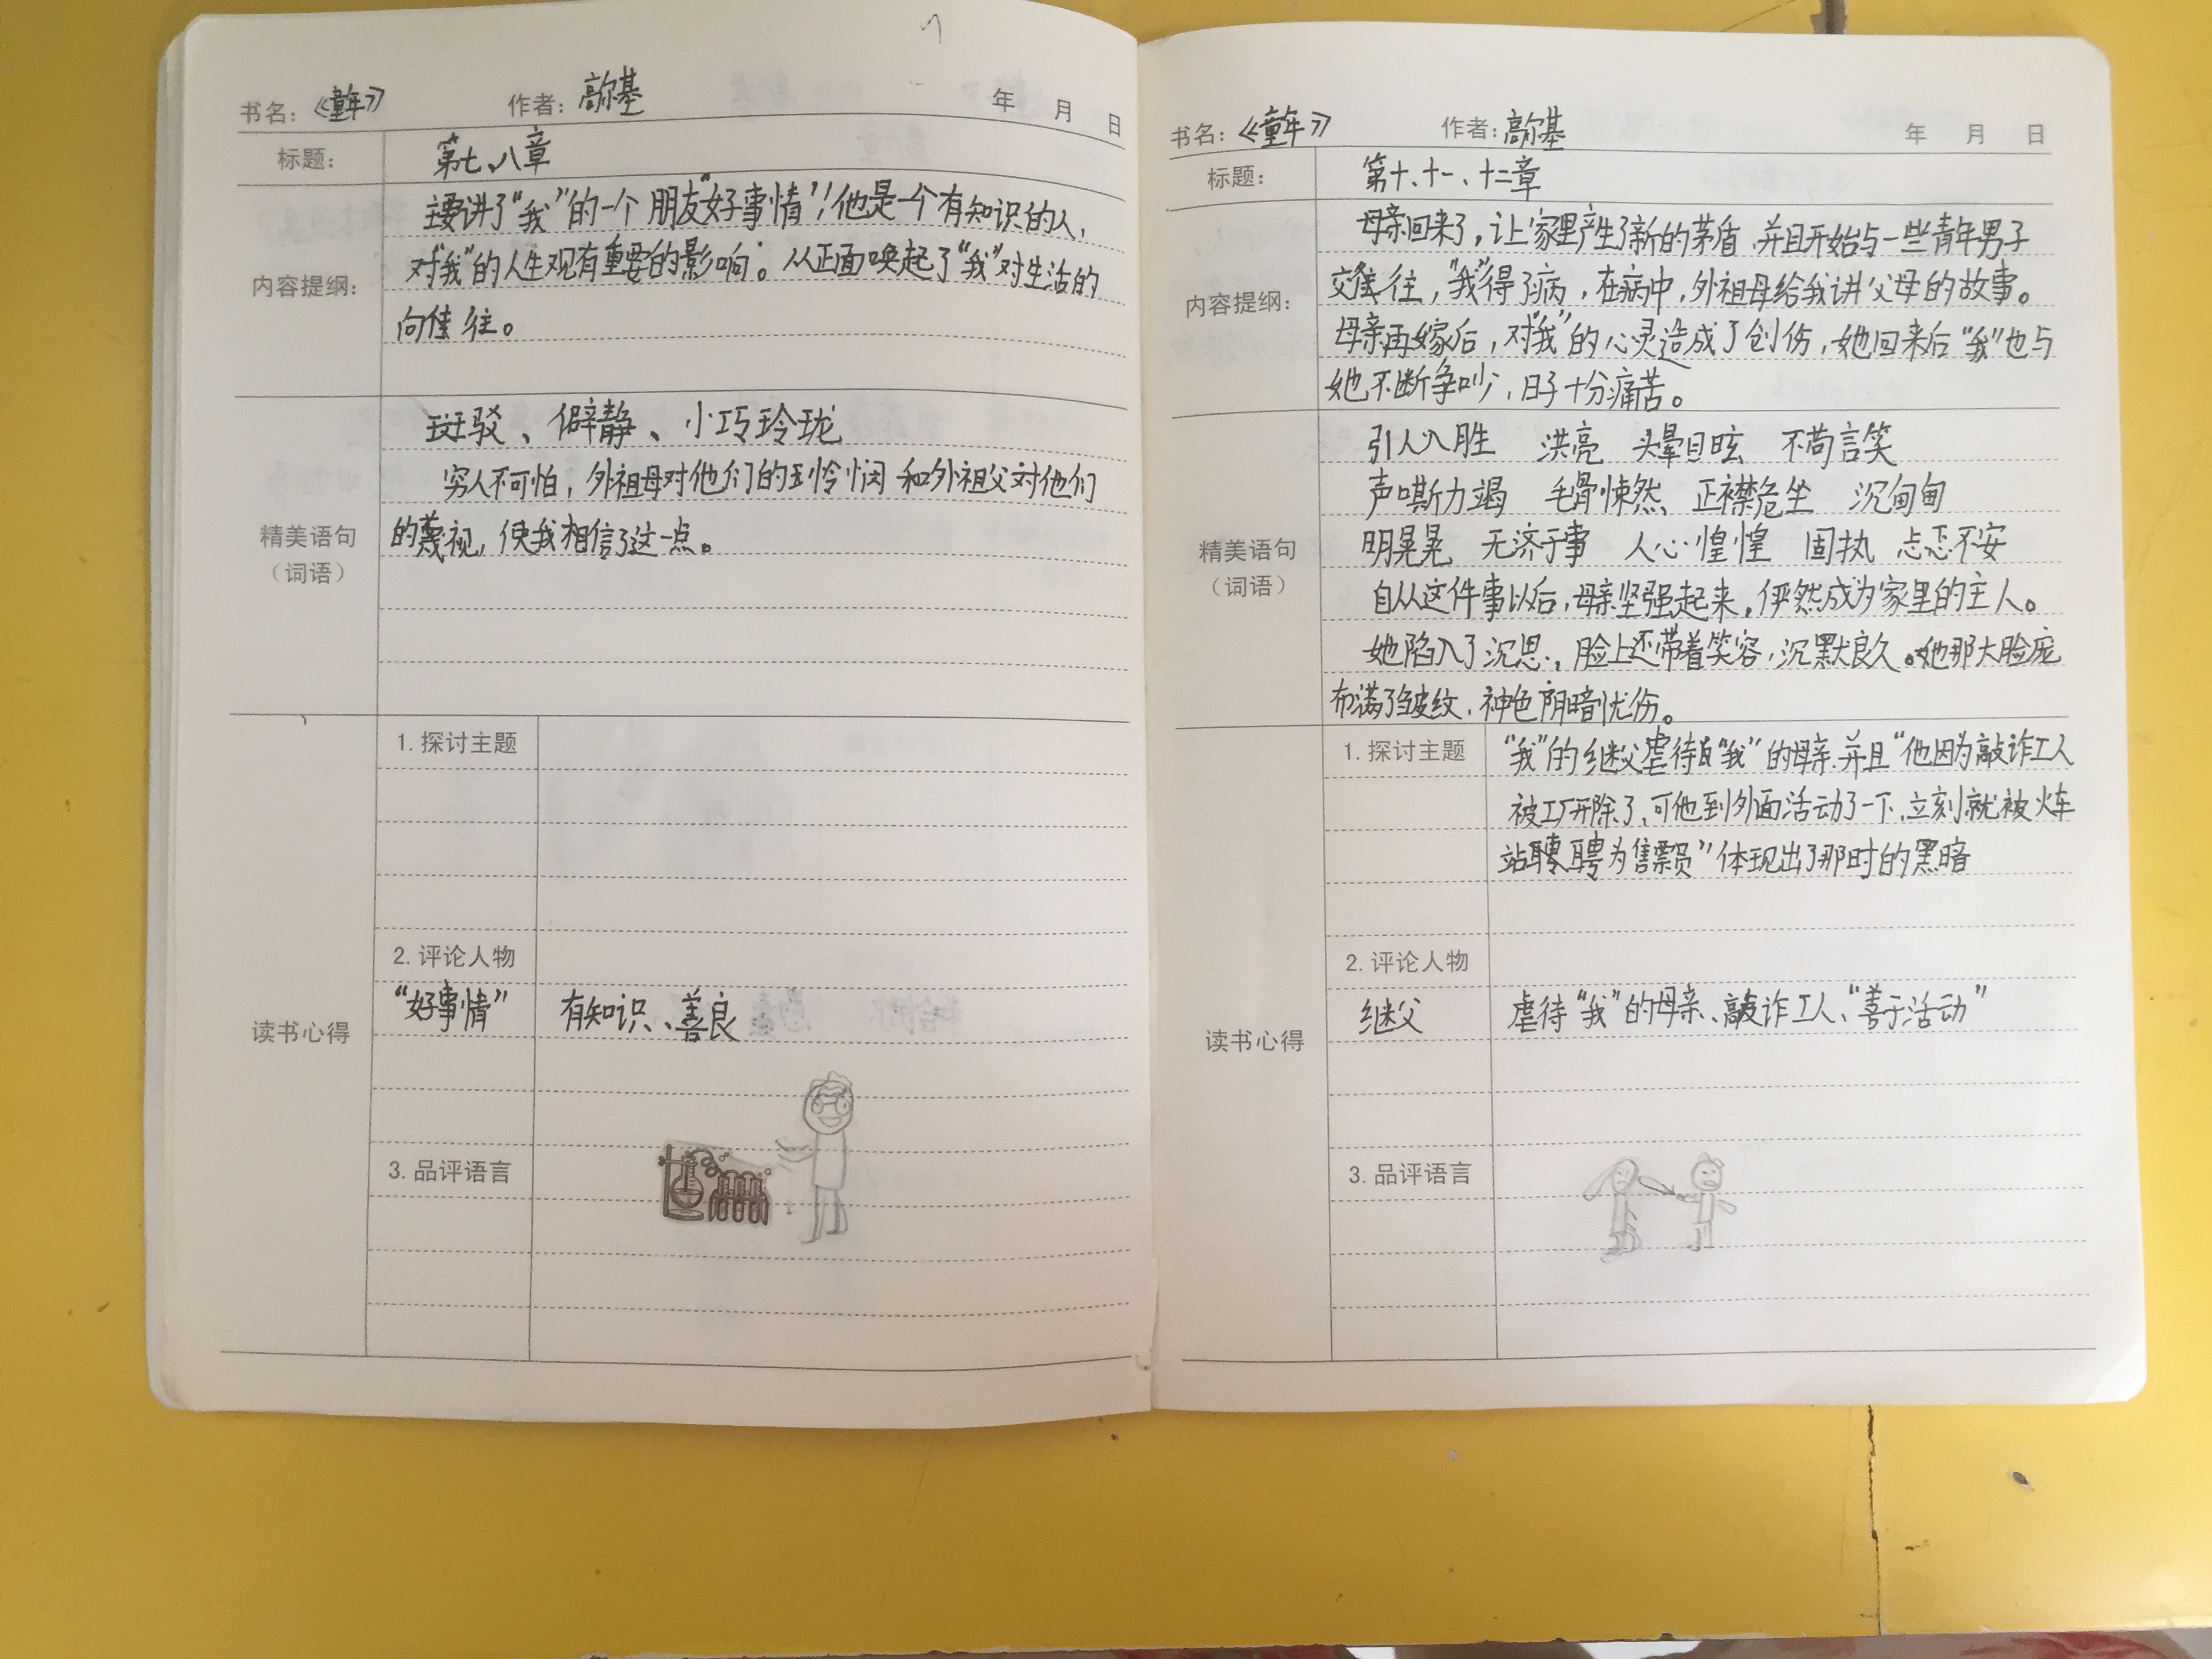 书名：《童年》 作者：高尔基 年 月 日
标题： 第七、八章
内容提纲：
主要讲了“我”的一个朋友“好事情”！他是一个有知识的人，
对“我”的人生观有重要的影响。从正面唤起了“我”对生活的
向往。
精美语句
（词语）
斑驳、僻静、小巧玲珑
穷人不可怕，外祖母对他们的怜悯和外祖父对他们
的蔑视，使我相信了这一点。
读书心得
1.探讨主题
2.评论人物
“好事情” 有知识、善良
3.品评语言
书名：《童年》 作者：高尔基 年 月 日
标题： 第十、十一、十二章
内容提纲：
母亲回来了，让家里产生了新的茅盾，并且开始与一些青年男子
交往，“我”得了病，在病中，外祖母给我讲父母的故事。
母亲再嫁后，对“我”的心灵造成了创伤，她回来后“我”也与
她不断争吵，日子十分痛苦。
精美语句
（词语）
引人入胜 洪亮 头晕目眩 不苟言笑
声嘶力竭 毛骨悚然 正襟危坐 沉甸甸
明晃晃 无济于事 人心惶惶 固执 忐忑不安
自从这件事以后，母亲坚强起来，俨然成为家里的主人。
她陷入了沉思，脸上还带着笑容，沉默良久。她那大脸庞
布满了皱纹，神色阴暗忧伤。
读书心得
1.探讨主题
“我”的继父虐待“我”的母亲，并且“他因为敲诈工人
被工厂开除了，可他到外面活动了一下，立刻就被火车
站聘为售票员”体现出了那时的黑暗
2.评论人物
继父 虐待“我”的母亲、敲诈工人、“善于活动”
3.品评语言